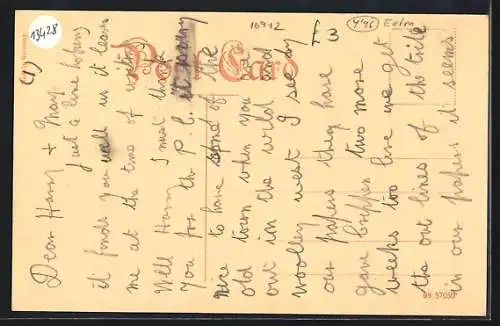 13428
10912
4'46 Extra
(1)
Post Card
Dear Harry + Mary
Just a line hoping
it finds you well us it leaves
me at the time of writing
Well Harry I must thank
you for the P.C. it very
nice to have spend of the
old town when you are
out in the wild and
woolley west I see by
our papers they have
gave Crippen two more
weeks too live we get
the out lines of the tile
in our papers it seems